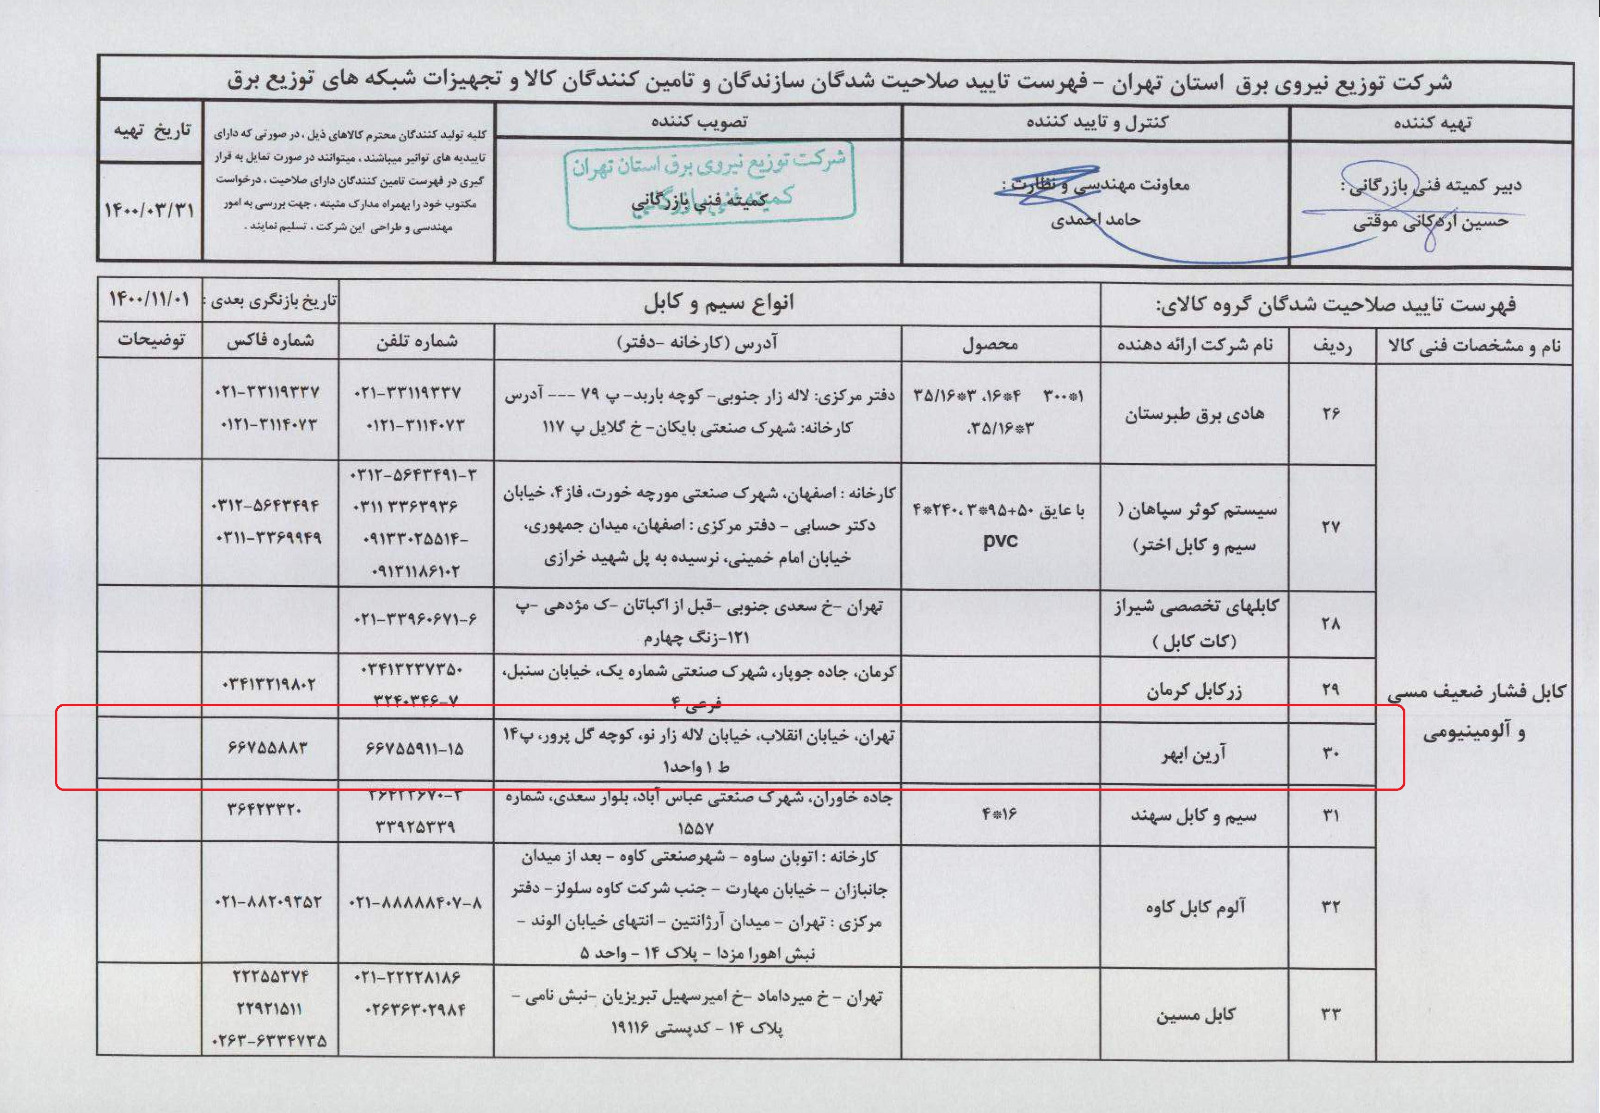 شرکت توزیع نیروی برق استان تهران - فهرست تایید صلاحیت شدگان سازندگان و تامین کنندگان کالا و تجهیزات شبکه های توزیع برق
تهیه کننده
کنترل و تایید کننده
تصویب کننده
کلیه تولید کنندگان محترم کالاهای ذیل ، در صورتی که دارای
تاییدیه های توانیر میباشند ، میتوانند در صورت تمایل به قرار
گیری در فهرست تامین کنندگان دارای صلاحیت ، درخواست
مکتوب خود را بهمراه مدارک مثبته ، جهت بررسی به امور
مهندسی و طراحی این شرکت ، تسلیم نمایند .
تاریخ تهیه
دبیر کمیته فنی بازرگانی :
حسین اردکانی موقتی
معاونت مهندسی و نظارت :
حامد احمدی
شرکت توزیع نیروی برق استان تهران
کمیته فنی بازرگانی
کمیته فنی بازرگانی
۱۴۰۰/۰۳/۳۱
فهرست تایید صلاحیت شدگان گروه کالای:
انواع سیم و کابل
تاریخ بازنگری بعدی :
۱۴۰۰/۱۱/۰۱
نام و مشخصات فنی کالا
ردیف
نام شرکت ارائه دهنده
محصول
آدرس (کارخانه -دفتر)
شماره تلفن
شماره فاکس
توضیحات
کابل فشار ضعیف مسی
و آلومینیومی
۲۶
هادی برق طبرستان
۱*۳۰۰ ۴*۱۶، ۳*۳۵/۱۶
۳*۳۵/۱۶،
دفتر مرکزی: لاله زار جنوبی- کوچه باربد- پ ۷۹ --- آدرس
کارخانه: شهرک صنعتی بایکان- خ گلایل پ ۱۱۷
۰۲۱-۳۳۱۱۹۳۳۷
۰۱۲۱-۳۱۱۴۰۷۳
۰۲۱-۳۳۱۱۹۳۳۷
۰۱۲۱-۳۱۱۴۰۷۳
۲۷
سیستم کوثر سپاهان (
سیم و کابل اختر)
با عایق ۵۰+۹۵*۳ ،۲۴۰*۴
pvc
کارخانه : اصفهان، شهرک صنعتی مورچه خورت، فاز۴، خیابان
دکتر حسابی - دفتر مرکزی : اصفهان، میدان جمهوری،
خیابان امام خمینی، نرسیده به پل شهید خرازی
۰۳۱۲-۵۶۴۳۴۹۱-۳
۰۳۱۱ ۳۳۶۳۹۳۶
۰۹۱۳۳۰۲۵۵۱۴-
۰۹۱۳۱۱۸۶۱۰۲
۰۳۱۲-۵۶۴۳۴۹۴
۰۳۱۱-۳۳۶۹۹۴۹
۲۸
کابلهای تخصصی شیراز
(کات کابل )
تهران -خ سعدی جنوبی -قبل از اکباتان -ک مژدهی -پ
۱۲۱-زنگ چهارم
۰۲۱-۳۳۹۶۰۶۷۱-۶
۲۹
زرکابل کرمان
کرمان، جاده جوپار، شهرک صنعتی شماره یک، خیابان سنبل،
فرعی ۴
۰۳۴۱۳۲۳۷۳۵۰
۳۲۴۰۳۴۶-۷
۰۳۴۱۳۲۱۹۸۰۲
۳۰
آرین ابهر
تهران، خیابان انقلاب، خیابان لاله زار نو، کوچه گل پرور، پ۱۴
ط ۱ واحد۱
۶۶۷۵۵۹۱۱-۱۵
۶۶۷۵۵۸۸۳
۳۱
سیم و کابل سهند
۴*۱۶
جاده خاوران، شهرک صنعتی عباس آباد، بلوار سعدی، شماره
۱۵۵۷
۳۳۹۲۵۳۳۹
۳۶۴۲۳۳۲۰
۳۲
آلوم کابل کاوه
کارخانه : اتوبان ساوه - شهرصنعتی کاوه - بعد از میدان
جانبازان - خیابان مهارت - جنب شرکت کاوه سلولز- دفتر
مرکزی : تهران - میدان آرژانتین - انتهای خیابان الوند -
نبش اهورا مزدا - پلاک ۱۴ - واحد ۵
۰۲۱-۸۸۸۸۸۴۰۷-۸
۰۲۱-۸۸۲۰۹۳۵۲
۳۳
کابل مسین
تهران - خ میرداماد -خ امیرسهیل تبریزیان -نبش نامی -
پلاک ۱۴ - کدپستی ۱۹۱۱۶
۰۲۱-۲۲۲۲۸۱۸۶
۰۲۶۳۶۳۰۲۹۸۴
۲۲۲۵۵۳۷۴
۲۲۹۲۱۵۱۱
۰۲۶۳-۶۳۳۴۷۳۵